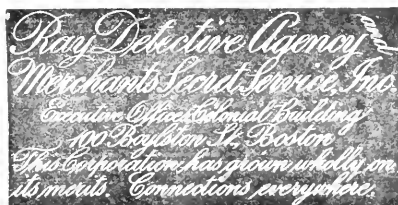 Ray Detective Agency and
Merchants Secret Service, Inc.
Executive Offices Colonial Building
100 Boylston St., Boston
This Corporation has grown wholly on
its merits. Connections everywhere.